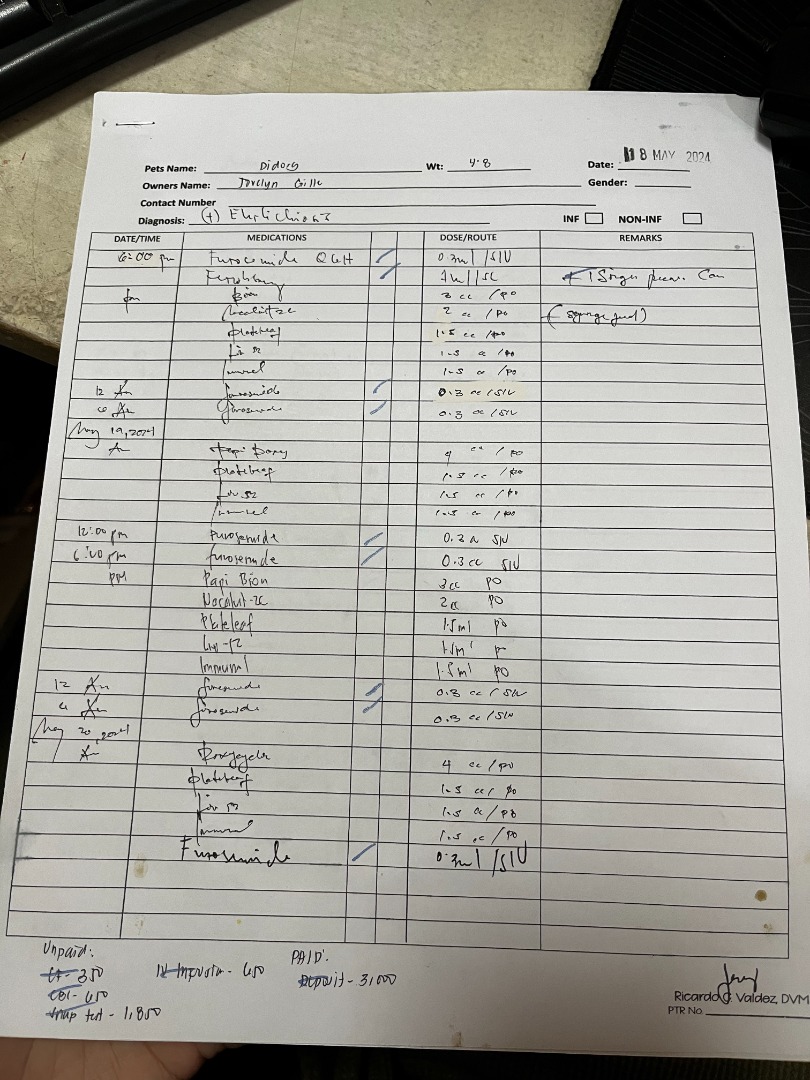 Pets Name: Wt: 4.8 Date: 18 MAY 2024
Owners Name: Jovelyn Gender:
Contact Number
Diagnosis: (+) Ehrlichiosis INF NON-INF
DATE/TIME MEDICATIONS DOSE/ROUTE REMARKS
6:00 pm Furosemide Q6H 0.3ml /SIV
1ml/SC
pm 3 cc /PO
2 cc /PO (syringe
1.5 cc /PO
Liv 52 1.5 cc /PO
Immunol 1.5 cc /PO
12 Am furosemide 0.3 cc /SIV
6 Am furosemide 0.3 cc /SIV
May 19, 2024
Am Papi Doxy 4 cc /PO
1.5 cc /PO
Liv 52 1.5 cc /PO
Immunol 1.5 cc /PO
12:00 pm Furosemide SIV
6:00 pm furosemide 0.3 cc SIV
pm Papi Bion 3cc PO
Nocalut-ZC 2cc PO
Plateleaf 1.5ml po
1.5ml po
Immunol 1.5ml PO
12 Am furosemide 0.3 cc / SIV
6 Am furosemide 0.3 cc /SIV
May 20, 2024
Am 4 cc /PO
1.5 cc/ PO
Liv 52 1.5 cc /PO
Immunol 1.5 cc /PO
Furosemide 0.3ml /SIV
Unpaid: PAID:
CF- 350 - 650 Deposit - 3,000
CBC- 650
Snap test - 1,850
Ricardo Valdez, DVM
PTR No.